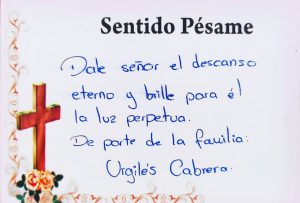 Sentido Pésame
Dale señor el descanso
eterno y brille para él
la luz perpetua.
De parte de la familia:
Urgilés Cabrera.